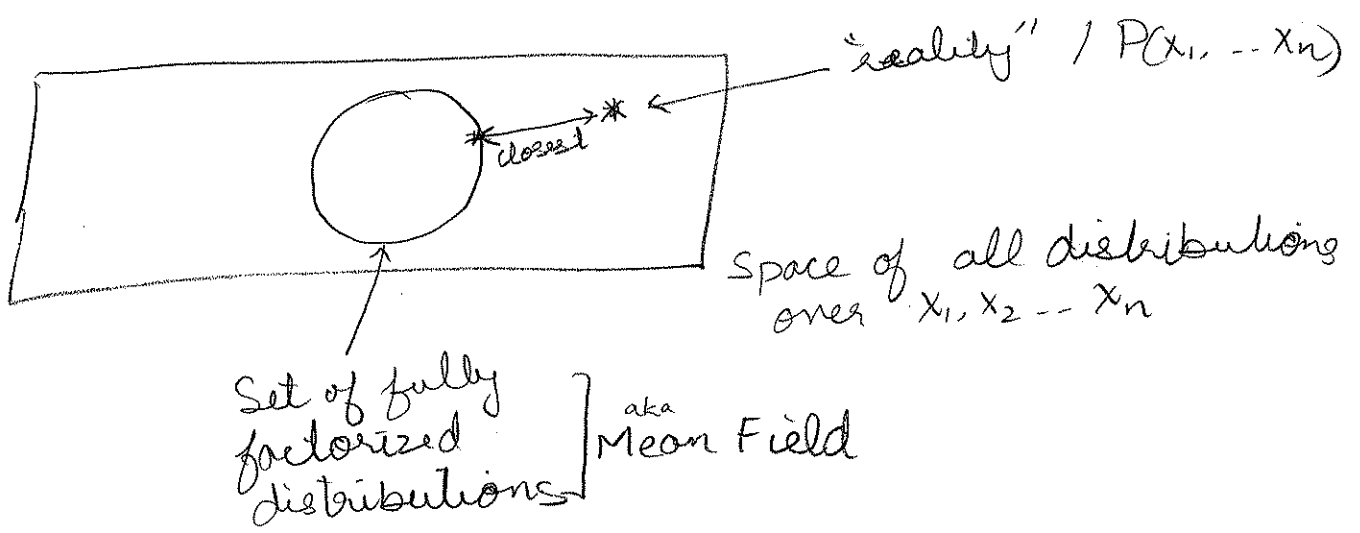 "reality" / P(x1, .. xn)
closest
Space of all distributions
over x1, x2 -- xn
Set of fully
factorized
distributions
aka
Mean Field